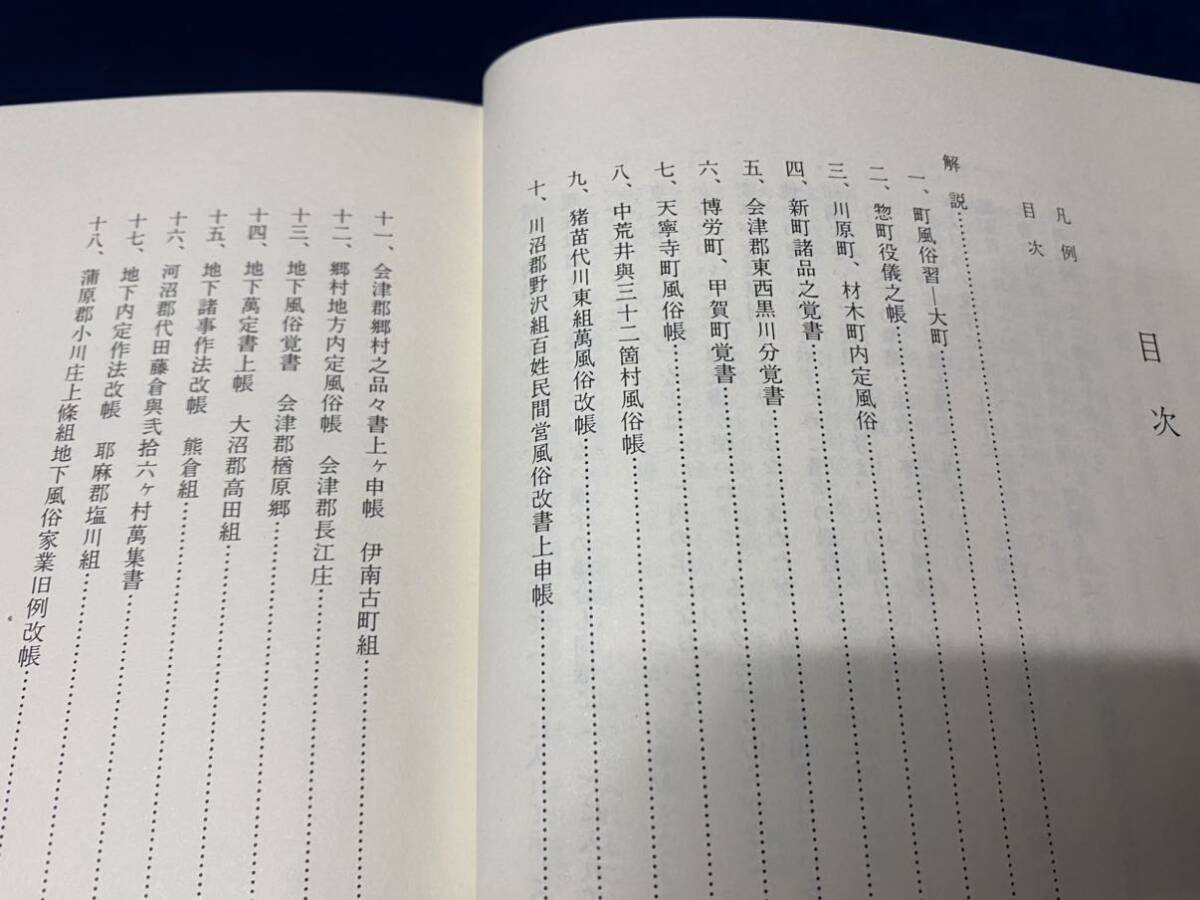 目次
凡例
目次
解説
一、町風俗習―大町
二、惣町役儀之帳
三、川原町、材木町内定風俗
四、新町諸品之覚書
五、会津郡東西黒川分覚書
六、博労町、甲賀町覚書
七、天寧寺町風俗帳
八、中荒井與三十二箇村風俗帳
九、猪苗代川東組萬風俗改帳
十、川沼郡野沢組百姓民間営風俗改書上申帳
十一、会津郡郷村之品々書上ヶ申帳 伊南古町組
十二、郷村地方内定風俗帳 会津郡長江庄
十三、地下風俗覚書 会津郡楢原郷
十四、地下萬定書上帳 大沼郡高田組
十五、地下諸事作法改帳 熊倉組
十六、河沼郡代田藤倉與弐拾六ヶ村萬集書
十七、地下内定作法改帳 耶麻郡塩川組
十八、蒲原郡小川庄上條組地下風俗家業旧例改帳